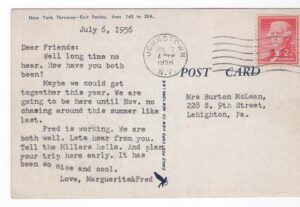 New York Thruway—Exit Fonda, then 148 to 29A.
July 6, 1956
Dear Friends:
Well long time no
hear. How have you both
been?
Maybe we could get
togeather this year. We are
going to be here until Nov. no
chasing around this summer like
last.
Fred is working. We are
both well. Lots hear from you.
Tell the Millers hello. And plan
your trip here early. It has
been so nice and cool.
Love, Marguerite&Fred
JOHNSTOWN
JUL 7
PM
1956
N.Y.
POST CARD
Mrs Burton McLean,
228 S. 9th Street,
Lehighton, Pa.